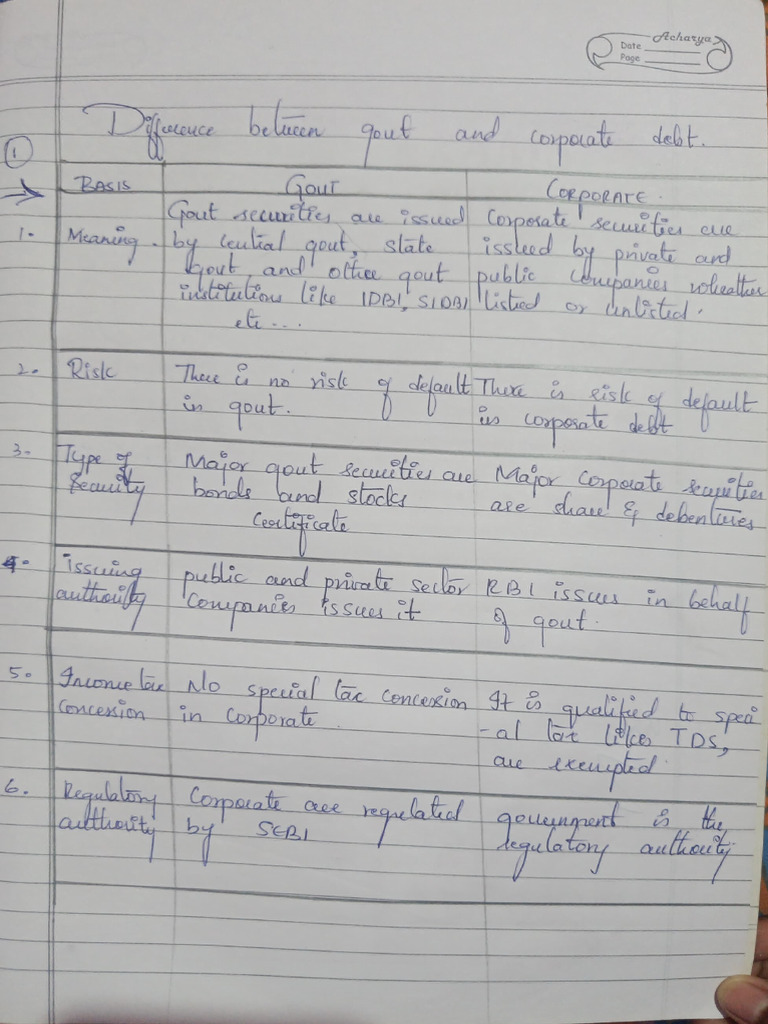 Acharya
Date
Page
Difference between gout and corporate debt.
①
BASIS Gout CORPORATE.
1. Meaning. Gout securities are issued by central gout, state gout, and other gout institutions like IDBI, SIDBI etc...
Corporate securities are issued by private and public companies wheather listed or unlisted.
2. Risk There is no risk of default in gout.
There is risk of default in corporate debt
3. Type of Security Major gout securities are bonds and stocks Certificate
Major Corporate securities are share & debentures
4. issuing authority public and private sector Companies issues it
RBI issues in behalf of gout.
5. Income tax Concession No special tax concession in corporate.
It is qualified to speci-al tax likes TDS, are exempted.
6. Regulatory authority Corporate are regulated by SEBI
government is the regulatory authority.